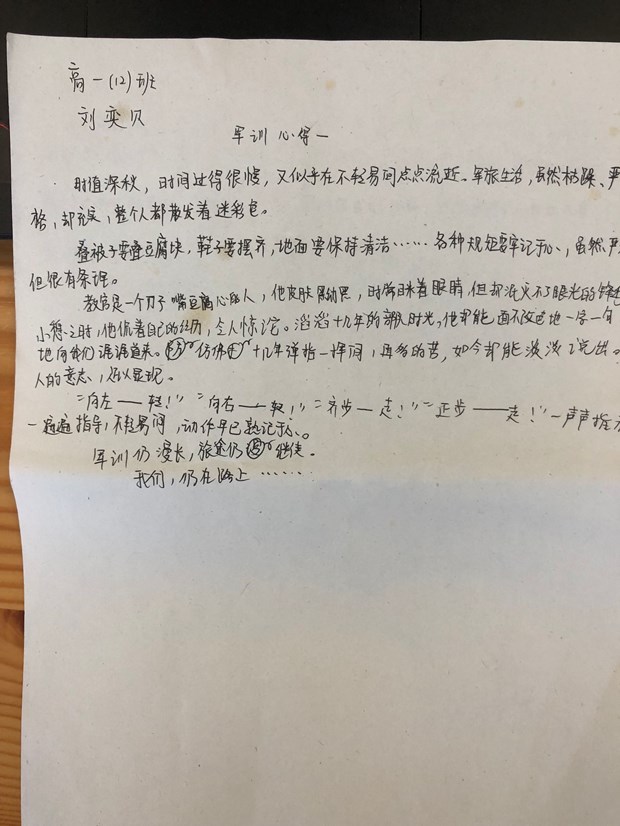 高一(12)班
刘奕贝
军训心得一
时值深秋，时间过得很慢，又似乎在不轻易间点点流逝。军旅生活，虽然枯燥、严
格，却充实，整个人都散发着迷彩色。
叠被子要叠豆腐块，鞋子要摆齐，地面要保持清洁……各种规矩要牢记于心，虽然严
但很有条理。
教官是一个刀子嘴豆腐心的人，他皮肤黝黑，时常眯着眼睛，但却泯灭不了眼光的锋
小憩之时，他侃着自己的经历，令人惊诧。滔滔十几年的部队时光，他却能面不改色地一字一句
地向我们娓娓道来。仿佛十几年弹指一挥间，再多的苦，如今却能淡淡说出。
人的意志，足以显现。
“向左——转！”“向右——转！”“齐步—走！”“正步——走！”一声声指
一遍遍指导，不轻易间，动作早已熟记于心。
军训仍漫长，旅途仍继续。
我们，仍在路上……